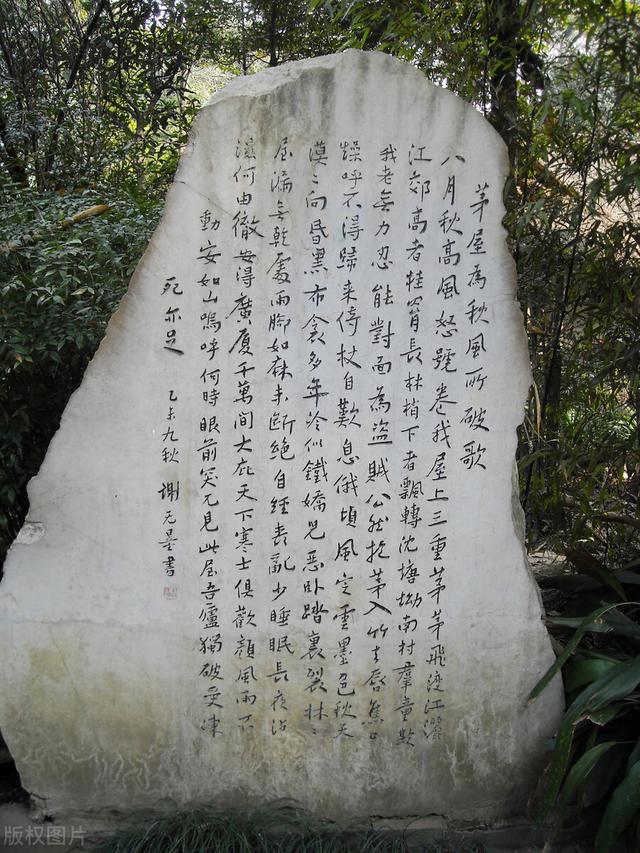 茅屋為秋風所破歌
八月秋高風怒號卷我屋上三重茅茅飛渡江灑
江郊高者挂罥長林梢下者飄轉沈塘坳南村羣童欺
我老無力忍能對面為盜賊公然抱茅入竹去唇焦口
燥呼不得歸來倚杖自歎息俄頃風定雲墨色秋天
漠漠向昏黑布衾多年冷似鐵嬌兒惡臥踏裏裂牀牀
屋漏無乾處雨腳如麻未斷絕自經喪亂少睡眠長夜沾
濕何由徹安得廣廈千萬間大庇天下寒士俱歡顏風雨不
動安如山嗚呼何時眼前突兀見此屋吾廬獨破受凍
死亦足
乙未九秋 謝无量書
版权图片